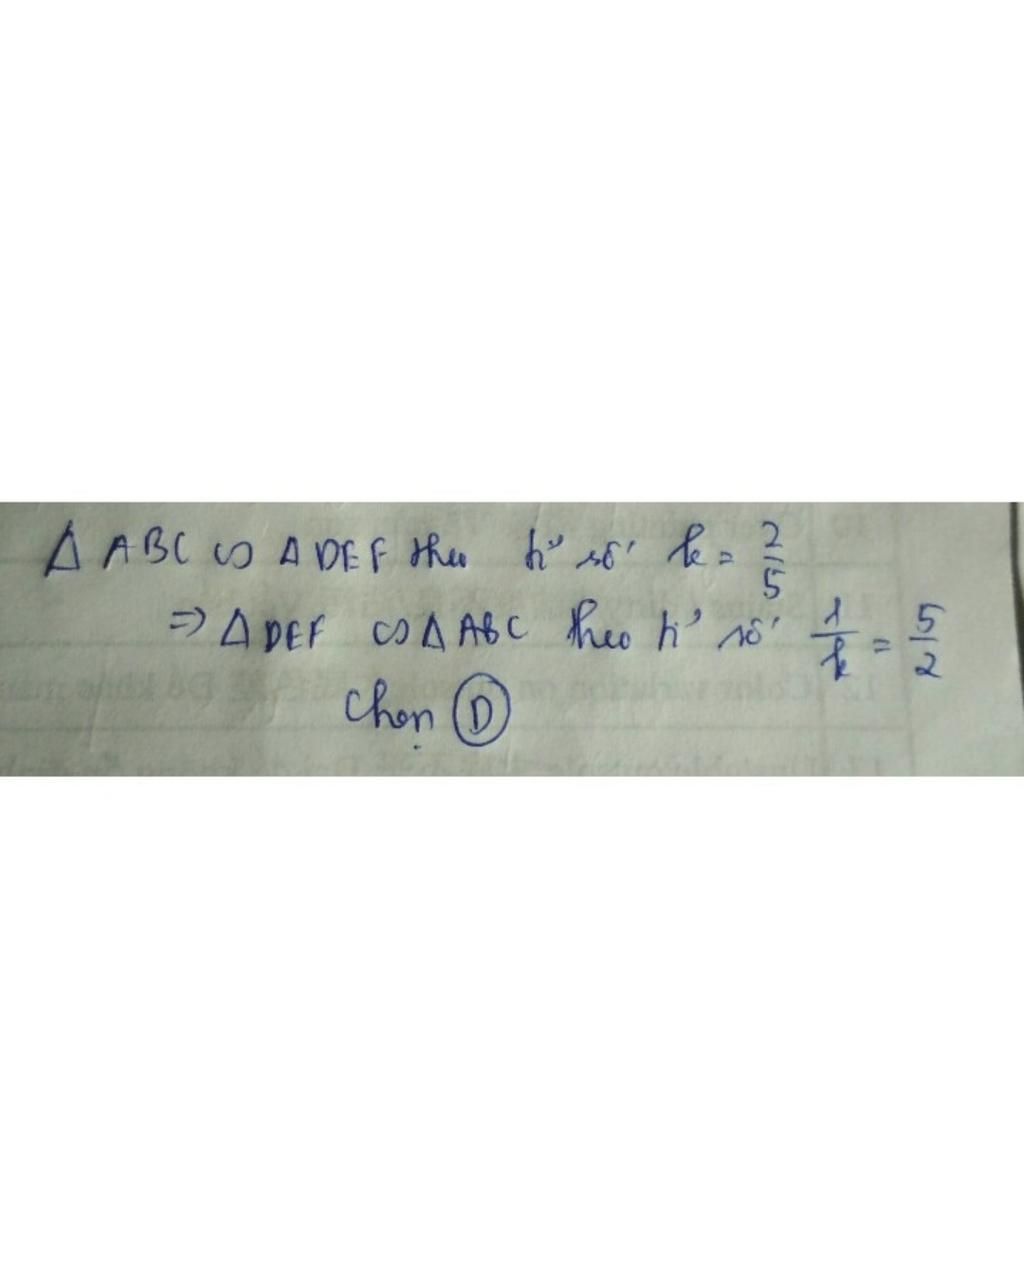 Δ ABC ∽ Δ DEF theo tỉ số k = 2/5
⇒ Δ DEF ∽ Δ ABC theo tỉ số 1/k = 5/2
Chọn D